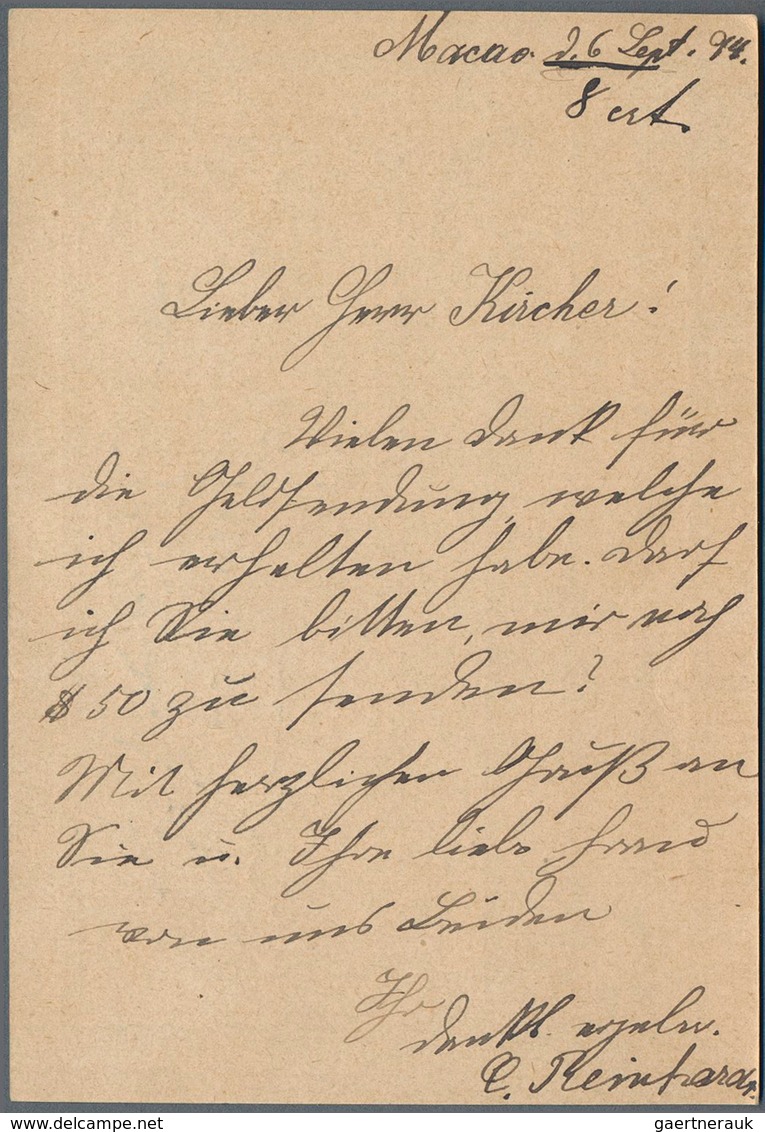 Macao. d. 6 Sept. 94.
8 crt.
Lieber Herr Kircher!
Vielen Dank für
die Geldsendung, welche
ich erhalten habe. Darf
ich Sie bitten, mir noch
$ 50 zu senden?
Mit herzlichen Gruß an
Sie u. Ihre liebe Frau
von uns Beiden
Ihr
dankb. ergebn.
C. Reinhardt.
gaertnerauk